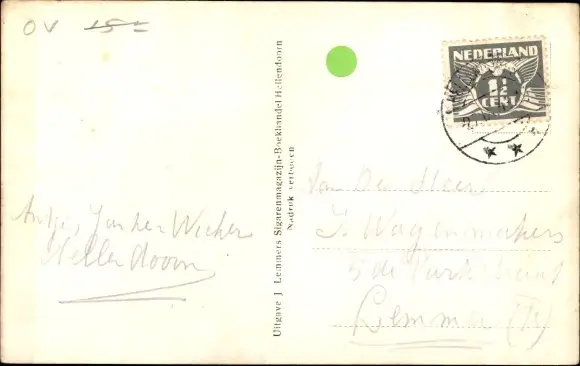 OV 15=
Uitgave J. Lemmers Sigarenmagazijn-Boekhandel Hellendoorn
Nadruk verboden
NEDERLAND
1½
CENT
Hellendoorn
Van De Heer
J. Wagenmakers
5 de Parkstraat
Lemmer (Fr)